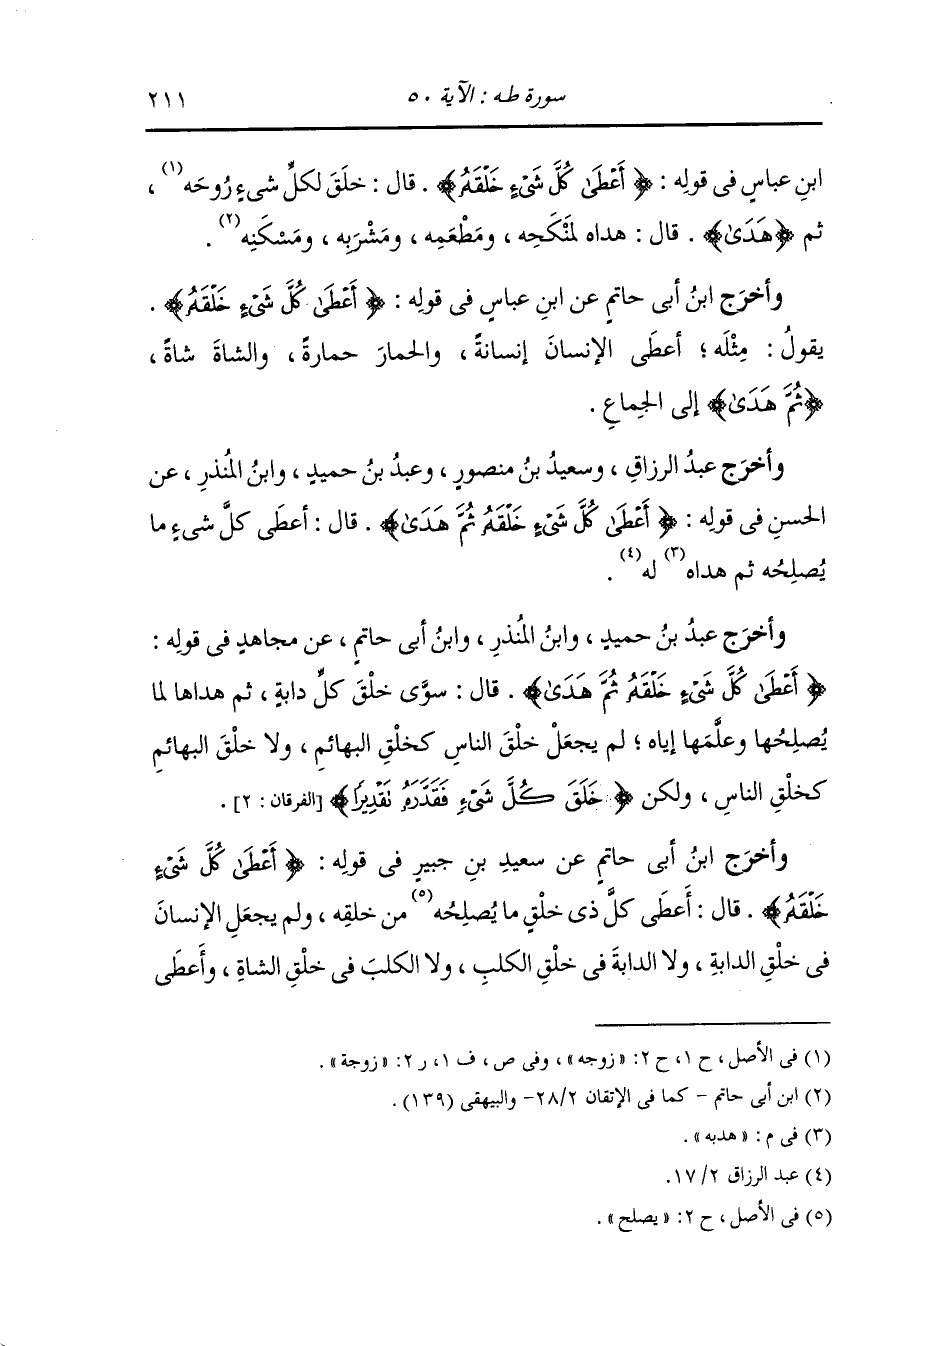 سورة طه : الآية ٥٠ ٢١١
ابنِ عباسٍ فى قولِه : ﴿ أَعْطَىٰ كُلَّ شَىْءٍ خَلْقَهُ﴾ . قال : خلَق لكلِّ شىءٍ رُوحَه(١) ،
ثم ﴿هَدَىٰ﴾ . قال : هداه لمَنْكَحِه ، ومَطْعَمِه ، ومَشْرَبِه ، ومَسْكَنِه(٢) .
وأخرَج ابنُ أبى حاتمٍ عن ابنِ عباسٍ فى قولِه : ﴿ أَعْطَىٰ كُلَّ شَىْءٍ خَلْقَهُ﴾ .
يقولُ : مِثْلَه ؛ أعطَى الإنسانَ إنسانةً ، والحمارَ حمارةً ، والشاةَ شاةً ،
﴿ثُمَّ هَدَىٰ﴾ إلى الجِماعِ .
وأخرَج عبدُ الرزاقِ ، وسعيدُ بنُ منصورٍ ، وعبدُ بنُ حميدٍ ، وابنُ المُنذرِ ، عن
الحسنِ فى قولِه : ﴿ أَعْطَىٰ كُلَّ شَىْءٍ خَلْقَهُ ثُمَّ هَدَىٰ﴾ . قال : أعطَى كلَّ شىءٍ ما
يُصلِحُه ثم هداه(٣) له(٤) .
وأخرَج عبدُ بنُ حميدٍ ، وابنُ المُنذرِ ، وابنُ أبى حاتمٍ ، عن مجاهدٍ فى قولِه :
﴿ أَعْطَىٰ كُلَّ شَىْءٍ خَلْقَهُ ثُمَّ هَدَىٰ﴾ . قال : سوَّى خلْقَ كلِّ دابةٍ ، ثم هداها لما
يُصلِحُها وعلَّمَها إياه ؛ لم يجعَلْ خلْقَ الناسِ كخلْقِ البهائمِ ، ولا خلْقَ البهائمِ
كخلْقِ الناسِ ، ولكن ﴿ خَلَقَ كُلَّ شَىْءٍ فَقَدَّرَهُ تَقْدِيرًا﴾ [الفرقان : ٢] .
وأخرَج ابنُ أبى حاتمٍ عن سعيدِ بنِ جبيرٍ فى قولِه : ﴿ أَعْطَىٰ كُلَّ شَىْءٍ
خَلْقَهُ﴾ . قال : أَعطَى كلَّ ذى خلْقٍ ما يُصلِحُه(٥) من خلقِه ، ولم يجعَلِ الإنسانَ
فى خلْقِ الدابةِ ، ولا الدابةَ فى خلْقِ الكلبِ ، ولا الكلبَ فى خلْقِ الشاةِ ، وأَعطَى
(١) فى الأصل ، ح ١، ح ٢: «زوجه» ، وفى ص ، ف ١، ر ٢: «زوجة» .
(٢) ابن أبى حاتم - كما فى الإتقان ٢٨/٢- والبيهقى (١٣٩) .
(٣) فى م : «هديه» .
(٤) عبد الرزاق ١٧/٢.
(٥) فى الأصل ، ح ٢: «يصلح» .